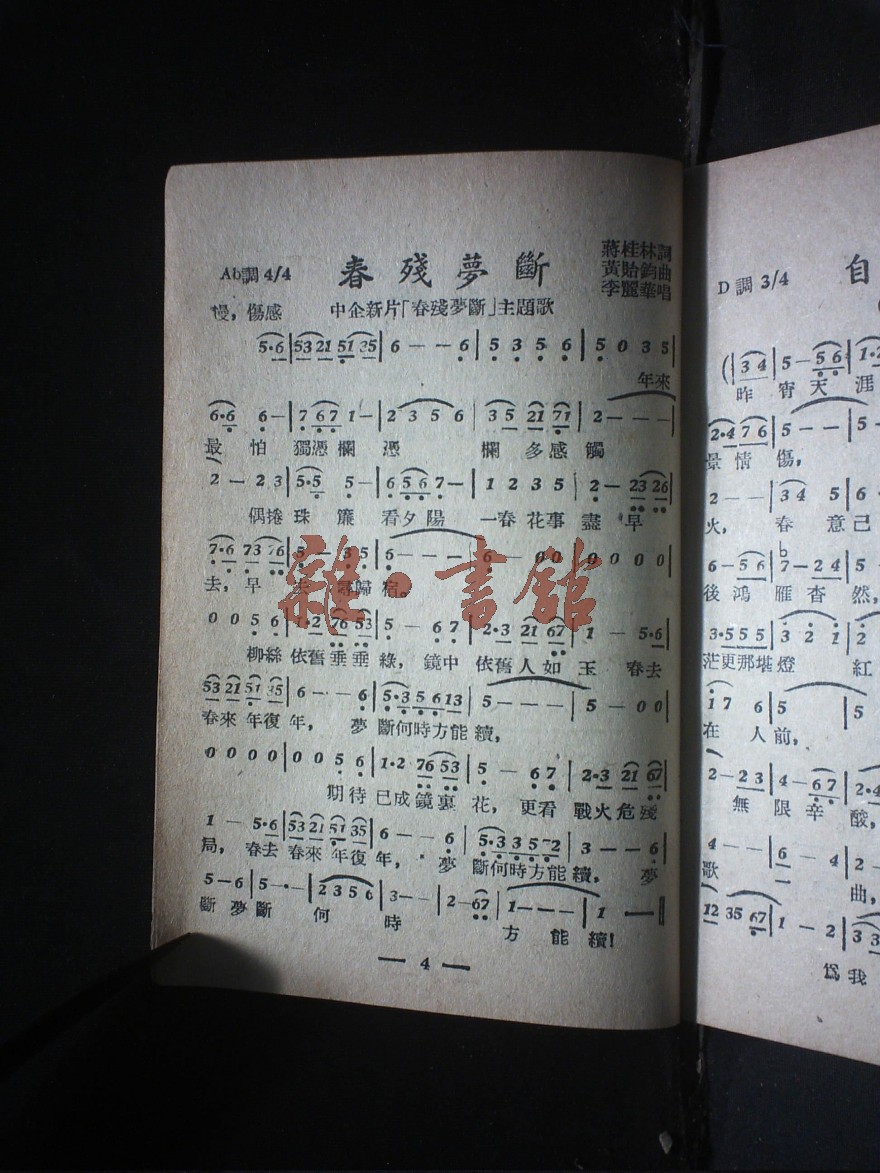 春殘夢斷
蔣桂林詞
黃貽鈞曲
李麗華唱
Ab調 4/4
慢，傷感
中企新片「春殘夢斷」主題歌
5·6 | 53 21 51 35 | 6 — — 6 | 5 3 5 6 | 5 0 3 5 |
年來
6·6 6 — | 7 67 1 — | 2 3 5 6 | 3 5 21 71 | 2 — — — |
最怕 獨憑欄憑 欄多感觸
2 — 2 3 | 5·5 5 — | 6 56 7 — | 1 2 3 5 | 2 — 23 26 |
偶捲珠簾 看夕陽 一春花事盡早
7·6 73 76 | 5 — 3 5 | 6 — — — | 6 — 0 0 | 0 0 0 0 |
去，早去尋歸宿。
0 0 5 6 | 1·2 76 53 | 5 — 6 7 | 2·3 21 67 | 1 — 5·6 |
柳絲依舊垂垂綠，鏡中依舊人如玉 春去
53 21 51 35 | 6 — — 6 | 5·3 5 6 13 | 5 — — — | 5 — 0 0 |
春來年復年，夢斷何時方能續，
0 0 0 0 | 0 0 5 6 | 1·2 76 53 | 5 — 6 7 | 2·3 21 67 |
期待已成鏡裏花，更看戰火危殘
1 — 5·6 | 53 21 51 35 | 6 — — 6 | 5·3 3 5 72 | 3 — — 6 |
局，春去春來年復年，夢斷何時方能續，夢
5 — 6 | 5 — · — | 2 3 5 6 | 3 — — | 2 — 67 | 1 — — — | 1 — ‖
斷夢斷 何時 方能續！
— 4 —
自
D調 3/4
昨宵天涯
景情傷，
火，春意已
後鴻雁杳然，
茫更那堪燈紅
在人前，
無限辛酸，
歌一曲，
爲我
雜·書館